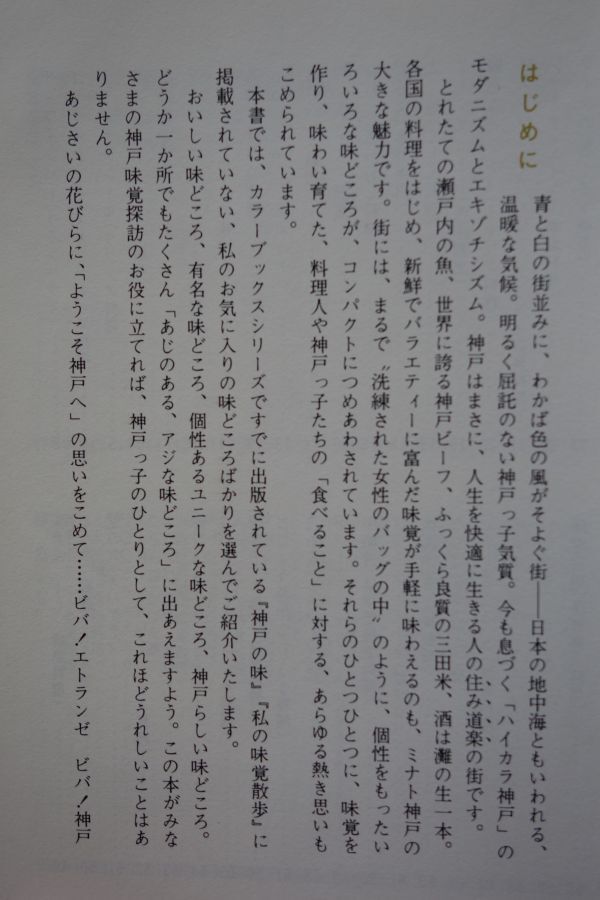 はじめに
青と白の街並みに、わかば色の風がそよぐ街――日本の地中海ともいわれる、
温暖な気候。明るく屈託のない神戸っ子気質。今も息づく「ハイカラ神戸」の
モダニズムとエキゾチシズム。神戸はまさに、人生を快適に生きる人の住み道楽の街です。
とれたての瀬戸内の魚、世界に誇る神戸ビーフ、ふっくら良質の三田米、酒は灘の生一本。
各国の料理をはじめ、新鮮でバラエティーに富んだ味覚が手軽に味わえるのも、ミナト神戸の
大きな魅力です。街には、まるで〝洗練された女性のバッグの中〟のように、個性をもったい
ろいろな味どころが、コンパクトにつめあわされています。それらのひとつひとつに、味覚を
作り、味わい育てた、料理人や神戸っ子たちの「食べること」に対する、あらゆる熱き思いも
こめられています。
本書では、カラーブックスシリーズですでに出版されている『神戸の味』『私の味覚散歩』に
掲載されていない、私のお気に入りの味どころばかりを選んでご紹介いたします。
おいしい味どころ、有名な味どころ、個性あるユニークな味どころ、神戸らしい味どころ。
どうか一か所でもたくさん「あじのある、アジな味どころ」に出あえますよう。この本がみな
さまの神戸味覚探訪のお役に立てれば、神戸っ子のひとりとして、これほどうれしいことはあ
りません。
あじさいの花びらに、「ようこそ神戸へ」の思いをこめて……ビバ！エトランゼ　ビバ！神戸